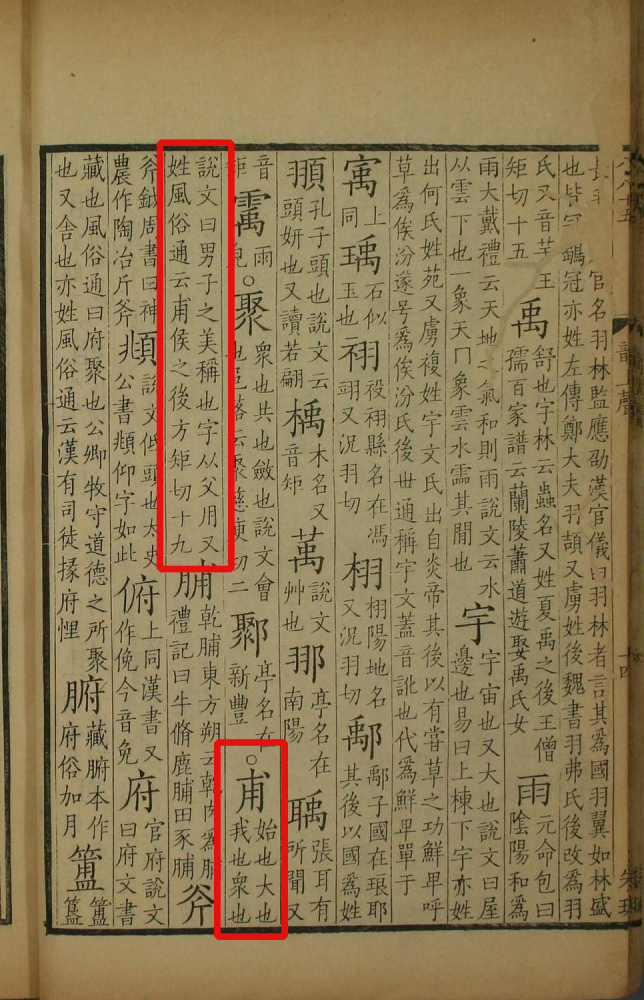 官名羽林監應劭漢官儀曰羽林者言其爲國羽翼如林盛也皆 鶡冠亦姓左傳鄭大夫羽頡又虜姓後魏書羽弗氏後改爲羽
氏又音芋王矩切十五禹舒也字林云蟲名又姓夏禹之後王僧孺百家譜云蘭陵蕭道遊娶禹氏女雨元命包曰陰陽和爲
雨大戴禮云天地之氣和則雨說文云水从雲下也一象天冂象雲水霝其閒也宇宇宙也又大也說文曰屋邊也易曰上棟下宇亦姓
出何氏姓苑又虜複姓宇文氏出自炎帝其後以有嘗草之功鮮卑呼草爲俟汾遂号爲俟汾氏後世通稱宇文蓋音訛也代爲鮮卑單于
㝢上同瑀石似玉也祤祋祤縣名在馮翊又況羽切栩栩陽地名又況羽切鄅鄅子國在琅耶其後以國爲姓
頨孔子頭也說文云頭妍也又讀若翩楀木名又音矩萭說文艸也亭名在南陽聥張耳有所聞又
音矩雨皃○聚眾也共也斂也說文會也邑落云聚慈庾切二鄹亭名在新豐○甫始也大也我也眾也
說文曰男子之美稱也字从父用又姓風俗通云甫侯之後方矩切十九脯乾脯東方朔云乾肉爲脯禮記曰牛脩鹿脯田豕脯斧
斧鉞周書曰神農作陶冶斤斧頫說文低頭也太史公書頫仰字如此俯上同漢書又作俛今音免府官府說文曰府文書
藏也風俗通曰府聚也公卿牧守道德之所聚也又舍也亦姓風俗通云漢有司徒掾府悝腑藏腑本作府俗加月簠簠簋